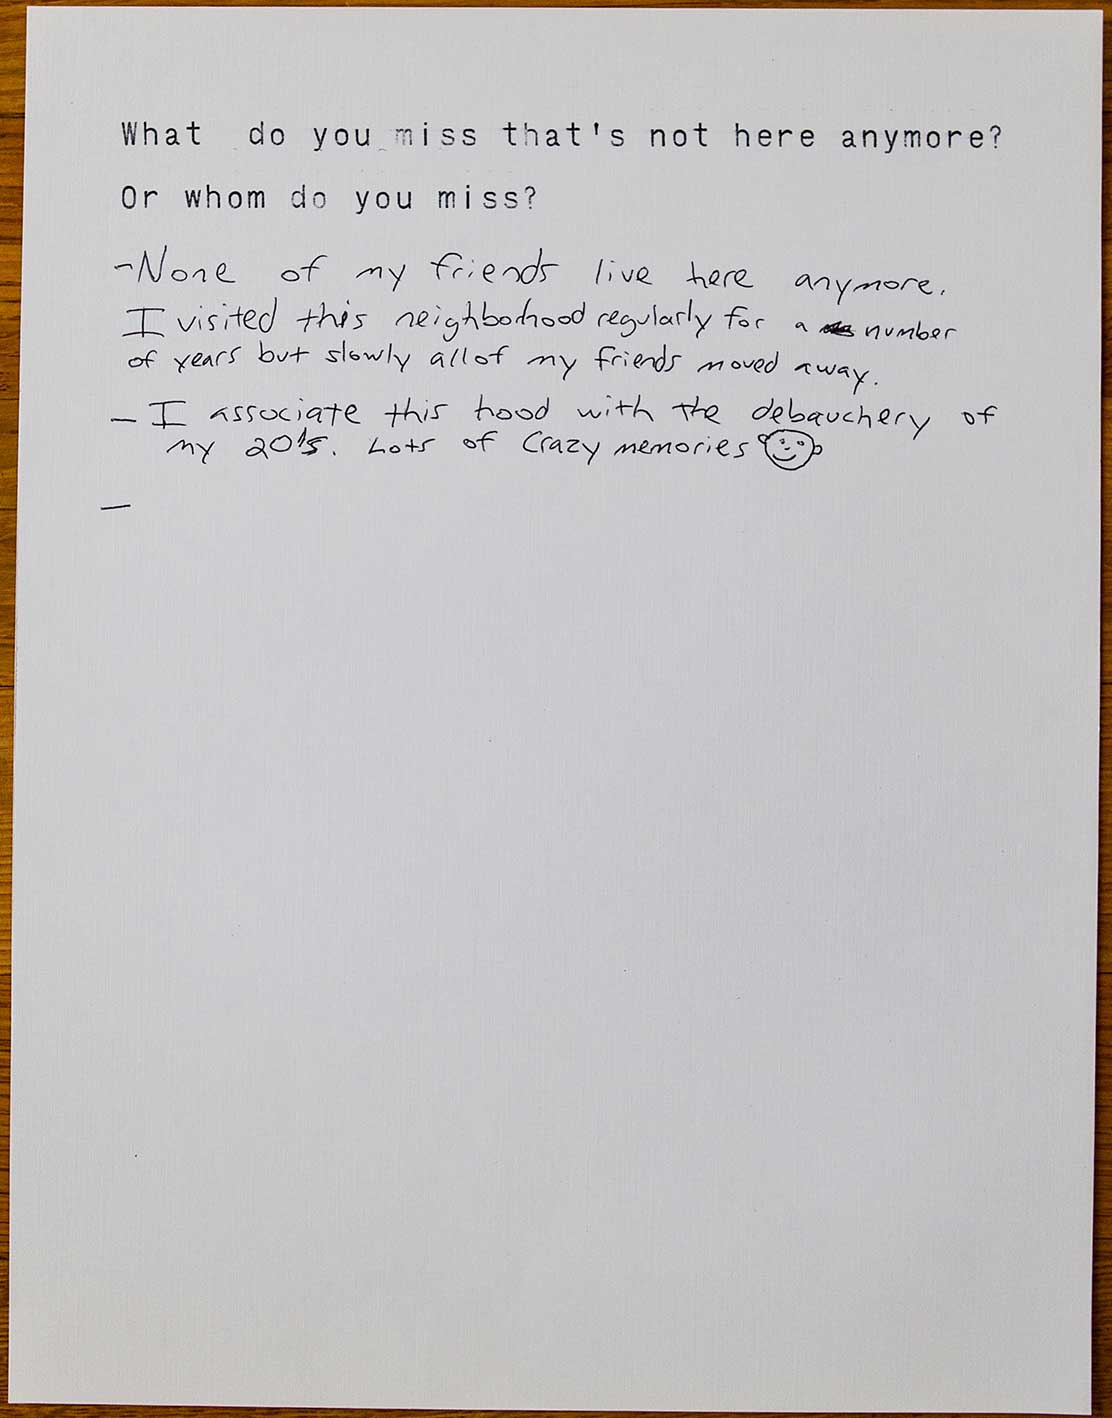 What do you miss that's not here anymore?
Or whom do you miss?
- None of my friends live here anymore.
I visited this neighborhood regularly for a number
of years but slowly all of my friends moved away.
- I associate this hood with the debauchery of
my 20's. Lots of crazy memories
-